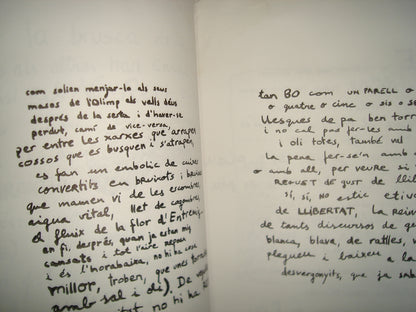 com solien menjar-lo als seus
masos de l'Olimp als vells déus
després de la sesta i d'haver-se
perdut, camí de vice-versa,
per entre les xarxes que arrapen
cossos que es busquen i s'atrapen,
es fan un embolic de cuixes
convertits en bruixots i bruixes
que mamen vi de les escombres,
aigua vital, llet de cogombres,
el fluix de la flor d'Entrecuix
en fi, després, quan ja estan mig
cansats i tot l'aire reposa
i és l'horabaixa, no hi ha cosa
millor, troben, que unes
amb sal i oli). De
no hi ha
tan BO com UN PARELL o
o quatre o cinc o sis o se
llesques de pa ben torra
i no cal pas fer-les amb
i oli totes, també val
la pena fer-se'n amb
o amb all, per veure si
REGUST DE GUST DE LLI
sí, sí, no estic
de LLIBERTAT, la REIN
de tants discursos de gu
blanca, blava, de ratlles, v
pleguem i baixem a la
desvergonyits, que ja sab